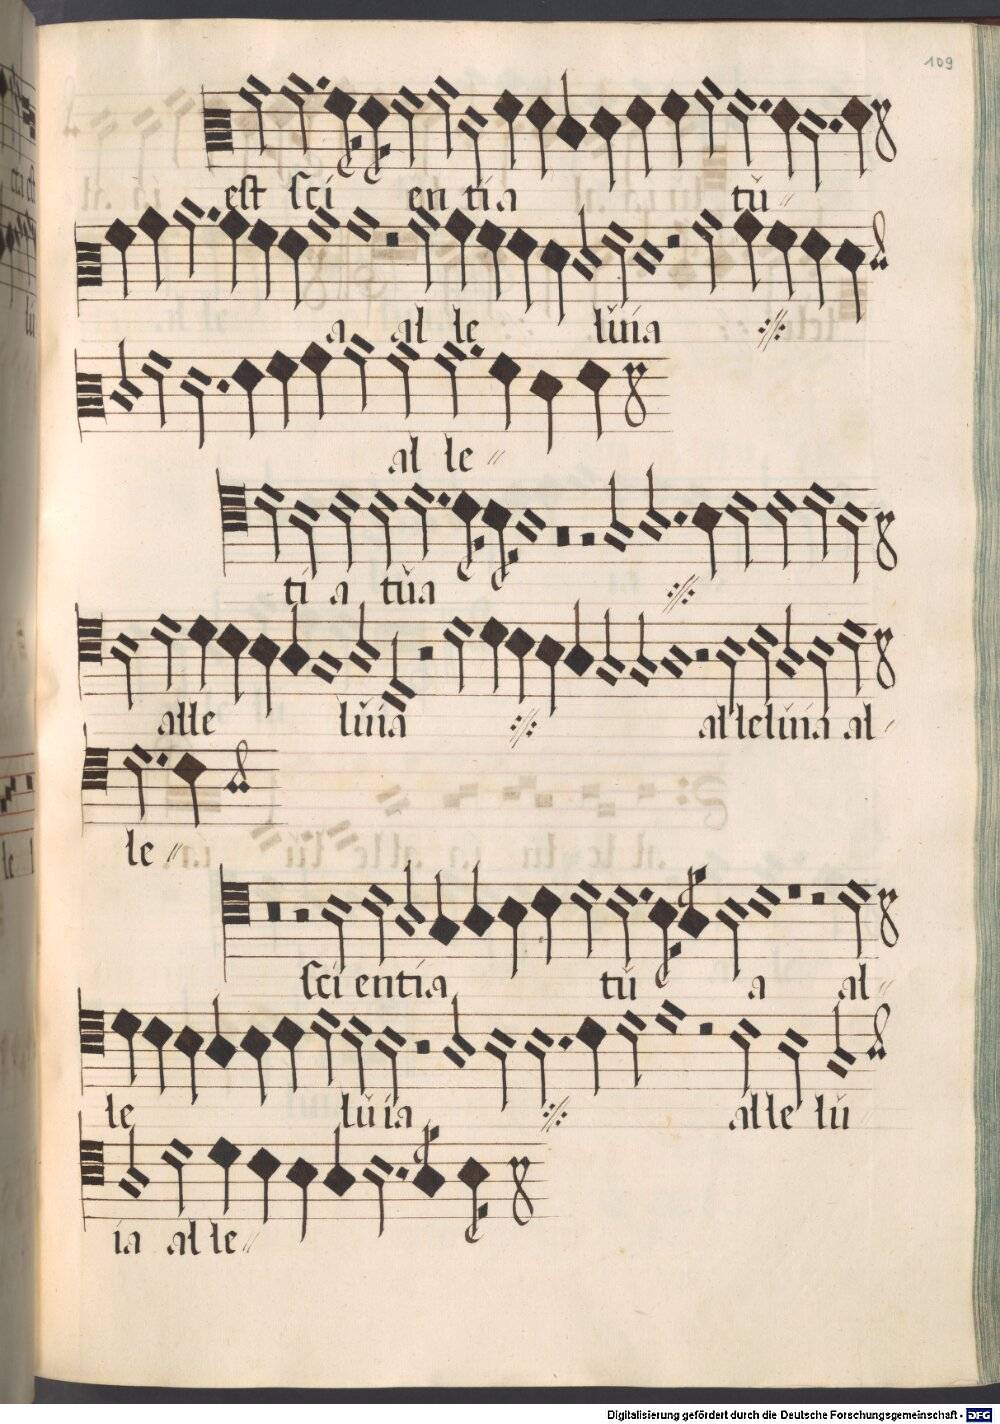 109
est sci en tia tu
a al le luia
al le
ti a tua
alle luia alleluia al
le
sci entia tu a al
le luia alle lu
ia alle
Digitalisierung gefördert durch die Deutsche Forschungsgemeinschaft - DFG